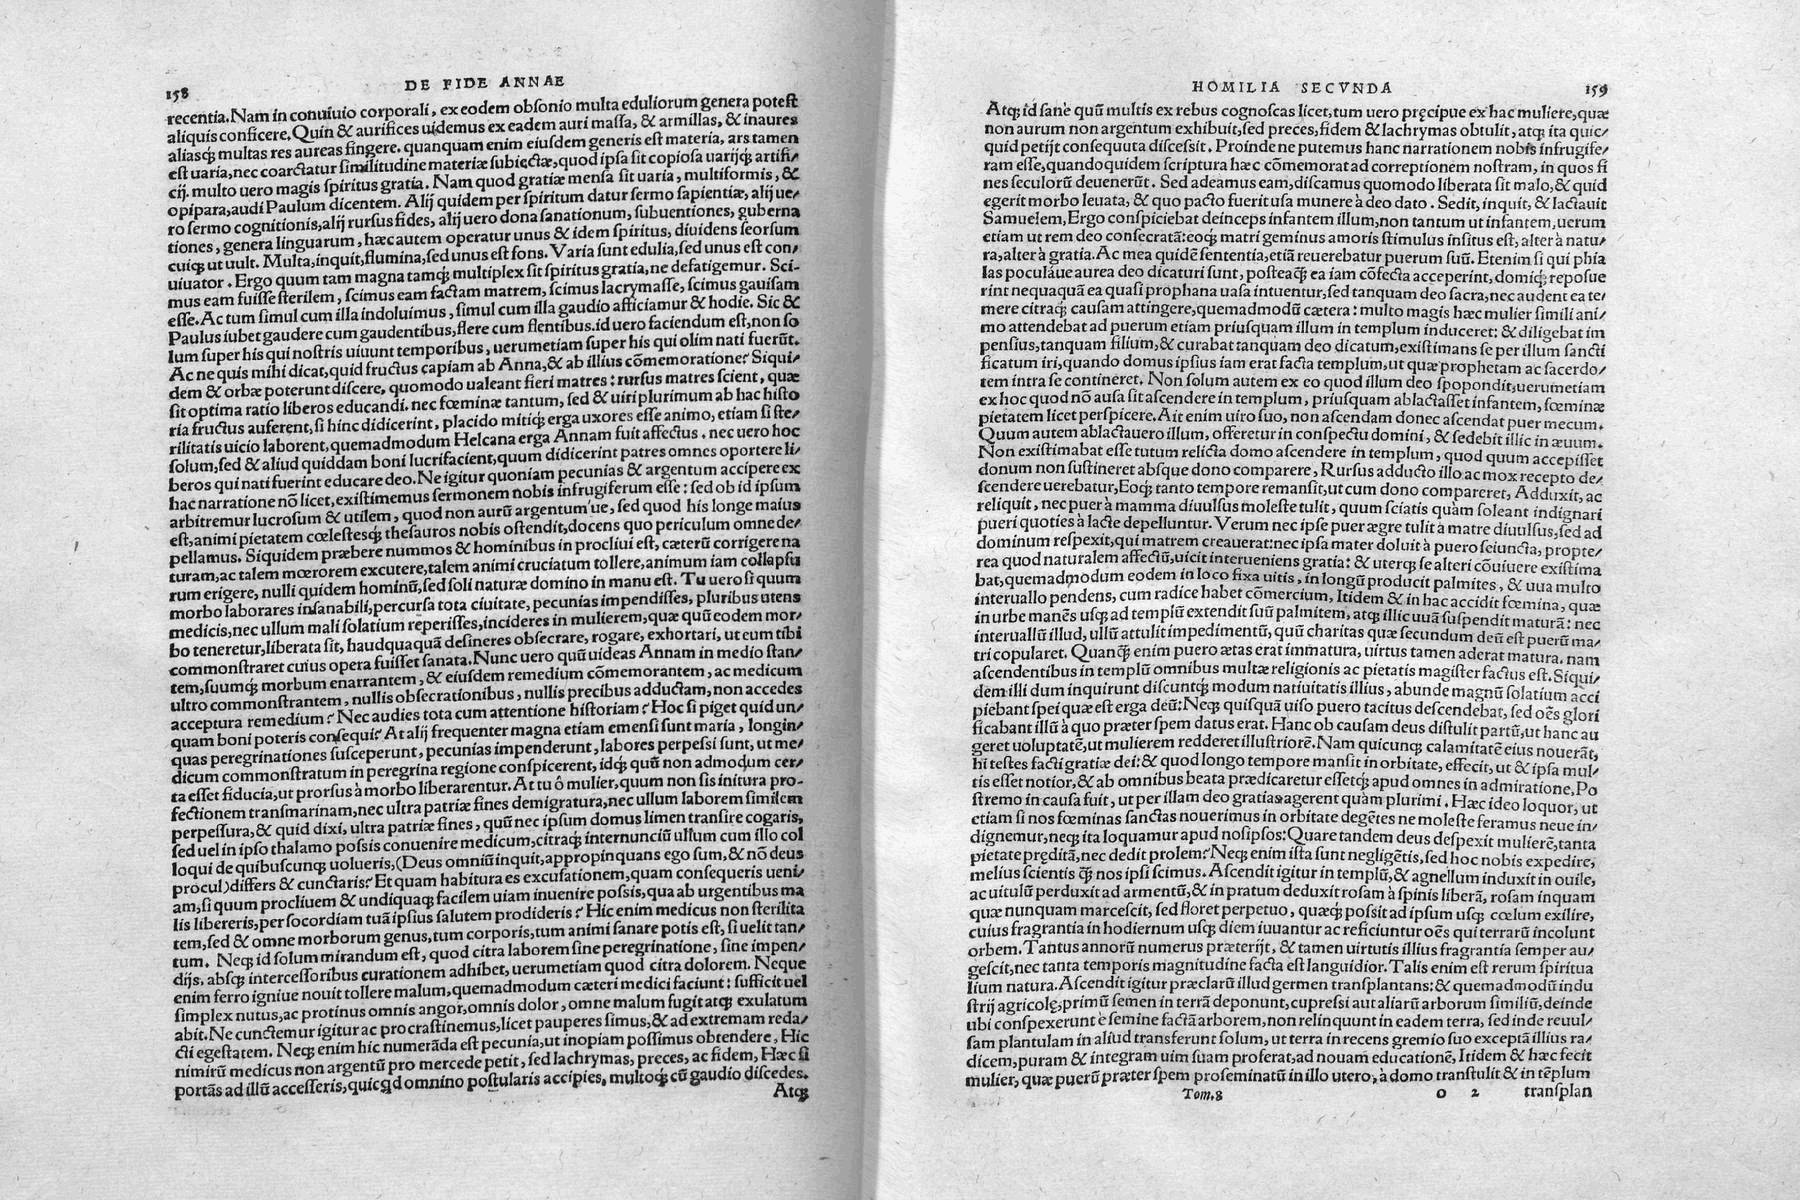 158
DE FIDE ANNAE
recentia. Nam in conuiuio corporali, ex eodem obſonio multa eduliorum genera poteſt
aliquis conficere. Quin & aurifices uidemus ex eadem auri maſſa, & armillas, & inaures
aliasq́; multas res aureas fingere. quanquam enim eiuſdem generis eſt materia, ars tamen
eſt uaria, nec coarctatur ſimilitudine materiæ ſubiectæ, quod ipſa ſit copioſa uarijq́; artifi/
cij. multo uero magis ſpiritus gratia. Nam quod gratiæ menſa ſit uaria, multiformis, &
opipara, audi Paulum dicentem. Alij quidem per ſpiritum datur ſermo ſapientiæ, alij ue/
ro ſermo cognitionis, alij rurſus fides, alij uero dona ſanationum, ſubuentiones, guberna
tiones, genera linguarum, hæc autem operatur unus & idem ſpiritus, diuidens ſeorſum
cuiq́; ut uult. Multa, inquit, flumina, ſed unus eſt fons. Varia ſunt edulia, ſed unus eſt con/
uiuator. Ergo quum tam magna tamq́; multiplex ſit ſpiritus gratia, ne defatigemur. Sci-
mus eam fuiſſe ſterilem, ſcimus eam factam matrem, ſcimus lacrymaſſe, ſcimus gauiſam
eſſe. Ac tum ſimul cum illa indoluimus, ſimul cum illa gaudio afficiamur & hodie. Sic &
Paulus iubet gaudere cum gaudentibus, flere cum flentibus. id uero faciendum eſt, non ſo
lum ſuper his qui noſtris uiuunt temporibus, uerumetiam ſuper his qui olim nati fuerūt.
Ac ne quis mihi dicat, quid fructus capiam ab Anna, & ab illius cōmemoratione? Siqui/
dem & orbæ poterunt diſcere, quomodo ualeant fieri matres: rurſus matres ſcient, quæ
ſit optima ratio liberos educandi. nec fœminæ tantum, ſed & uiri plurimum ab hac hiſto
ria fructus auferent, ſi hinc didicerint, placido mitiq́; erga uxores eſſe animo, etiam ſi ſte/
rilitatis uicio laborent, quemadmodum Helcana erga Annam fuit affectus. nec uero hoc
ſolum, ſed & aliud quiddam boni lucrifacient, quum didicerint patres omnes oportere li/
beros qui nati fuerint educare deo. Ne igitur quoniam pecunias & argentum accipere ex
hac narratione nō licet, exiſtimemus ſermonem nobis infrugiferum eſſe: ſed ob id ipſum
arbitremur lucroſum & utilem, quod non aurū argentum'ue, ſed quod his longe maius
eſt, animi pietatem cœleſtesq́; theſauros nobis oſtendit, docens quo periculum omne de/
pellamus. Siquidem præbere nummos & hominibus in procliui eſt, cæterū corrigere na
turam, ac talem mœrorem excutere, talem animi cruciatum tollere, animum iam collapſu
rum erigere, nulli quidem hominū, ſed ſoli naturæ domino in manu eſt. Tu uero ſi quum
morbo laborares inſanabili, percurſa tota ciuitate, pecunias impendiſſes, pluribus utens
medicis, nec ullum mali ſolatium reperiſſes, incideres in mulierem, quæ quū eodem mor/
bo teneretur, liberata ſit, haudquaquā deſineres obſecrare, rogare, exhortari, ut eum tibi
commonſtraret cuius opera fuiſſet ſanata. Nunc uero quū uideas Annam in medio ſtan/
tem, ſuumq́; morbum enarrantem, & eiuſdem remedium cōmemorantem, ac medicum
ultro commonſtrantem, nullis obſecrationibus, nullis precibus adductam, non accedes
acceptura remedium? Nec audies tota cum attentione hiſtoriam? Hoc ſi piget quid un/
quam boni poteris conſequi? At alij frequenter magna etiam emenſi ſunt maria, longin/
quas peregrinationes ſuſceperunt, pecunias impenderunt, labores perpeſſi ſunt, ut me/
dicum commonſtratum in peregrina regione conſpicerent, idq́; quū non admodum cer/
ta eſſet fiducia, ut prorſus à morbo liberarentur. At tu ô mulier, quum non ſis initura pro-
fectionem tranſmarinam, nec ultra patriæ fines demigratura, nec ullum laborem ſimilem
perpeſſura, & quid dixi, ultra patriæ fines, quū nec ipſum domus limen tranſire cogaris,
ſed uel in ipſo thalamo poſsis conuenire medicum, citraq́; internunciū ullum cum illo col
loqui de quibuſcunq; uolueris, (Deus omniū inquit, appropinquans ego ſum, & nō deus
procul) differs & cunctaris? Et quam habitura es excuſationem, quam conſequeris ueni/
am, ſi quum procliuem & undiquaq; facilem uiam inuenire poſsis, qua ab urgentibus ma
lis libereris, per ſocordiam tuā ipſius ſalutem prodideris? Hic enim medicus non ſterilita
tem, ſed & omne morborum genus, tum corporis, tum animi ſanare potis eſt, ſi uelit tan/
tum. Neq; id ſolum mirandum eſt, quod citra laborem ſine peregrinatione, ſine impen/
dijs, abſq; interceſſoribus curationem adhibet, uerumetiam quod citra dolorem. Neque
enim ferro igniue nouit tollere malum, quemadmodum cæteri medici faciunt: ſufficit uel
ſimplex nutus, ac protinus omnis angor, omnis dolor, omne malum fugit atq; exulatum
abit. Ne cunctemur igitur ac procraſtinemus, licet pauperes ſimus, & ad extremam reda/
cti egeſtatem. Neq; enim hic numerāda eſt pecunia, ut inopiam poſſimus obtendere, Hic
nimirū medicus non argentū pro mercede petit, ſed lachrymas, preces, ac fidem, Hæc ſi
portās ad illū acceſſeris, quicqd omnino poſtularis accipies, multoq́; cū gaudio diſcedes.
Atq;
HOMILIA SECVNDA
159
Atq; id ſanè quū multis ex rebus cognoſcas licet, tum uero pręcipue ex hac muliere, quæ
non aurum non argentum exhibuit, ſed preces, fidem & lachrymas obtulit, atq; ita quic/
quid petijt conſequuta diſceſſit. Proinde ne putemus hanc narrationem nobis infrugife/
ram eſſe, quandoquidem ſcriptura hæc cōmemorat ad correptionem noſtram, in quos fi
nes ſeculorū deuenerūt. Sed adeamus eam, diſcamus quomodo liberata ſit malo, & quid
egerit morbo leuata, & quo pacto fuerit uſa munere à deo dato. Sedit, inquit, & lactauit
Samuelem, Ergo conſpiciebat deinceps infantem illum, non tantum ut infantem, uerum
etiam ut rem deo conſecratā: eoq́; matri geminus amoris ſtimulus inſitus eſt, alter à natu/
ra, alter à gratia. Ac mea quidē ſententia, etiā reuerebatur puerum ſuū. Etenim ſi qui phia
las poculáue aurea deo dicaturi ſunt, poſteaq̃; ea iam cōfecta acceperint, domiq́; repoſue
rint nequaquā ea quaſi prophana uaſa intuentur, ſed tanquam deo ſacra, nec audent ea te/
mere citraq́; cauſam attingere, quemadmodū cætera: multo magis hæc mulier ſimili ani/
mo attendebat ad puerum etiam priuſquam illum in templum induceret: & diligebat im
penſius, tanquam filium, & curabat tanquam deo dicatum, exiſtimans ſe per illum ſancti
ficatum iri, quando domus ipſius iam erat facta templum, ut quæ prophetam ac ſacerdo/
tem intra ſe contineret. Non ſolum autem ex eo quod illum deo ſpopondit, uerumetiam
ex hoc quod nō auſa ſit aſcendere in templum, priuſquam ablactaſſet infantem, fœminæ
pietatem licet perſpicere. Ait enim uiro ſuo, non aſcendam donec aſcendat puer mecum.
Quum autem ablactauero illum, offeretur in conſpectu domini, & ſedebit illic in æuum.
Non exiſtimabat eſſe tutum relicta domo aſcendere in templum, quod quum accepiſſet
donum non ſuſtineret abſque dono comparere, Rurſus adducto illo ac mox recepto de/
ſcendere uerebatur, Eoq́; tanto tempore remanſit, ut cum dono compareret, Adduxit, ac
reliquit, nec puer à mamma diuulſus moleſte tulit, quum ſciatis quàm ſoleant indignari
pueri quoties à lacte depelluntur. Verum nec ipſe puer ægre tulit à matre diuulſus, ſed ad
dominum reſpexit, qui matrem creauerat: nec ipſa mater doluit à puero ſeiuncta, propte/
rea quod naturalem affectū, uicit interueniens gratia: & uterq; ſe alteri cōuiuere exiſtima
bat, quemadmodum eodem in loco fixa uitis, in longū producit palmites, & uua multo
interuallo pendens, cum radice habet cōmercium, Itidem & in hac accidit fœmina, quæ
in urbe manēs uſq; ad templū extendit ſuū palmitem, atq; illic uuā ſuſpendit maturā: nec
interuallū illud, ullū attulit impedimentū, quū charitas quæ ſecundum deū eſt puerū ma/
tri copularet. Quanq̃; enim puero ætas erat immatura, uirtus tamen aderat matura. nam
aſcendentibus in templū omnibus multæ religionis ac pietatis magiſter factus eſt. Siqui/
dem illi dum inquirunt diſcuntq́; modum natiuitatis illius, abunde magnū ſolatium acci
piebant ſpei quæ eſt erga deū: Neq; quiſquā uiſo puero tacitus deſcendebat, ſed oēs glori
ficabant illū à quo præter ſpem datus erat. Hanc ob cauſam deus diſtulit partū, ut hanc au
geret uoluptatē, ut mulierem redderet illuſtriorē. Nam quicunq; calamitatē eius nouerāt,
hi teſtes facti gratiæ dei: & quod longo tempore manſit in orbitate, effecit, ut & ipſa mul/
tis eſſet notior, & ab omnibus beata prædicaretur eſſetq́; apud omnes in admiratione, Po
ſtremo in cauſa fuit, ut per illam deo gratias agerent quàm plurimi. Hæc ideo loquor, ut
etiam ſi nos fœminas ſanctas nouerimus in orbitate degētes ne moleſte feramus neue in/
dignemur, neq; ita loquamur apud noſipſos: Quare tandem deus deſpexit mulierē, tanta
pietate pręditā, nec dedit prolem? Neq; enim iſta ſunt negligētis, ſed hoc nobis expedire,
melius ſcientis q̃; nos ipſi ſcimus. Aſcendit igitur in templū, & agnellum induxit in ouile,
ac uitulū perduxit ad armentū, & in pratum deduxit roſam à ſpinis liberā, roſam inquam
quæ nunquam marceſcit, ſed floret perpetuo, quæq́; poſsit ad ipſum uſq; cœlum exilire,
cuius fragrantia in hodiernum uſq; diem iuuantur ac reficiuntur oēs qui terrarū incolunt
orbem. Tantus annorū numerus præterijt, & tamen uirtutis illius fragrantia ſemper au/
geſcit, nec tanta temporis magnitudine facta eſt languidior. Talis enim eſt rerum ſpiritua
lium natura. Aſcendit igitur præclarū illud germen tranſplantans: & quemadmodū indu
ſtrij agricolę, primū ſemen in terrā deponunt, cupreſſi aut aliarū arborum ſimiliū, deinde
ubi conſpexerunt è ſemine factā arborem, non relinquunt in eadem terra, ſed inde reuul/
ſam plantulam in aliud tranſferunt ſolum, ut terra in recens gremio ſuo exceptā illius ra/
dicem, puram & integram uim ſuam proferat, ad nouam educationē, Itidem & hæc fecit
mulier, quæ puerū præter ſpem proſeminatū in illo utero, à domo tranſtulit & in tēplum
Tom. 8
o 2
tranſplan